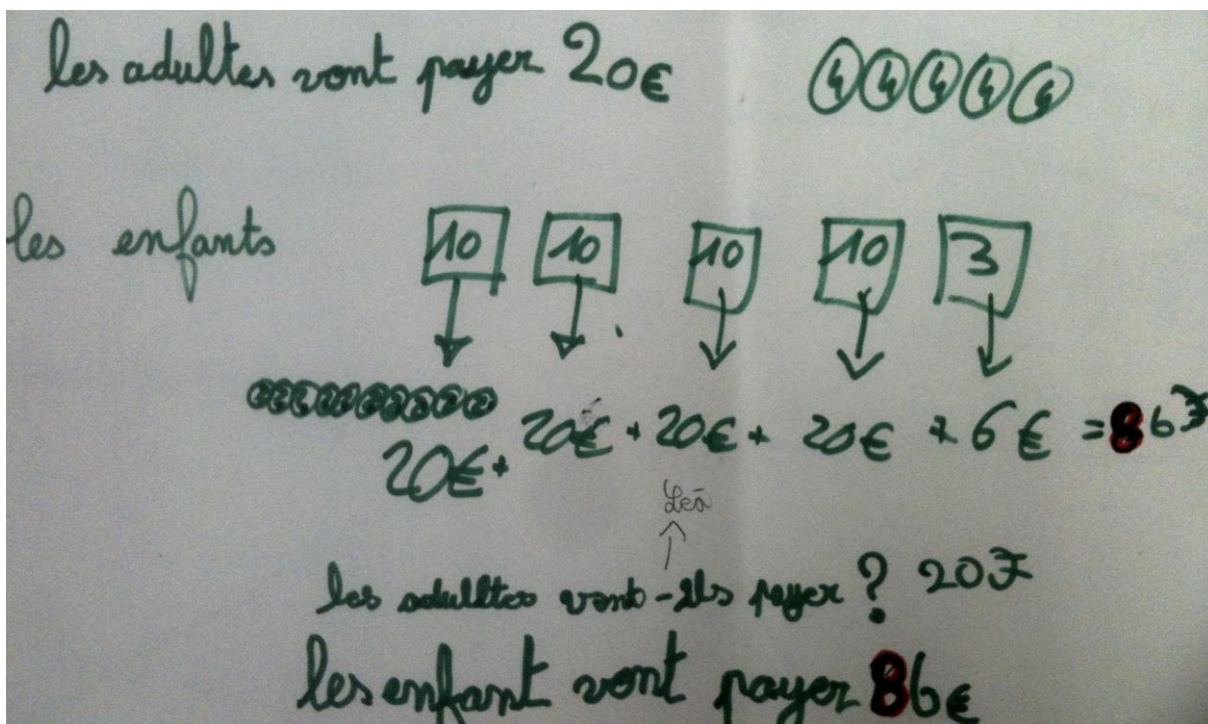 les adultes vont payer 20€ 4 4 4 4 4
les enfants 10 10 10 10 3
2 2 2 2 2 2 2 2 2 2
20€ + 20€ + 20€ + 20€ + 6€ = 86
Léa
les adulltes vont-ils payer ? 20
les enfant vont payer 86€